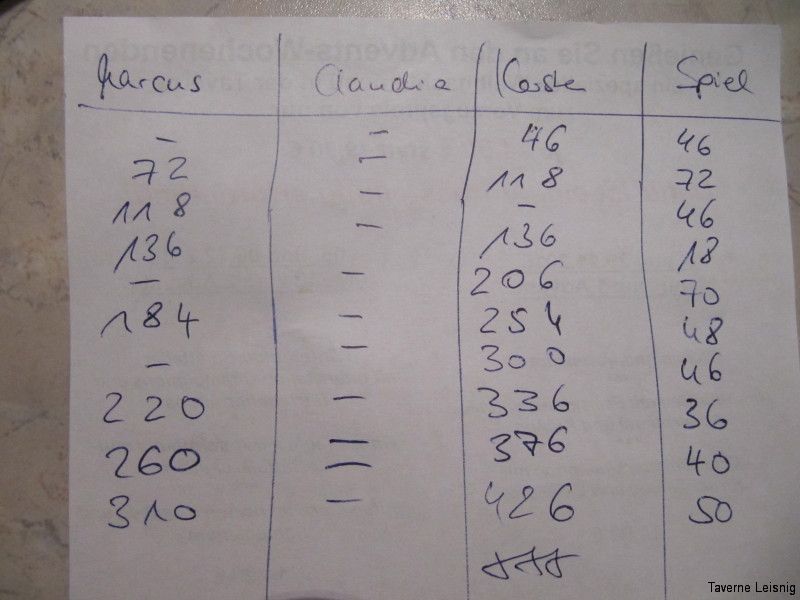 Marcus Claudia Karsten Spiel
– – 46 46
72 – 118 72
118 – – 46
136 – 136 18
– – 206 70
184 – 254 48
– – 300 46
220 – 336 36
260 – 376 40
310 – 426 50
Taverne Leisnig